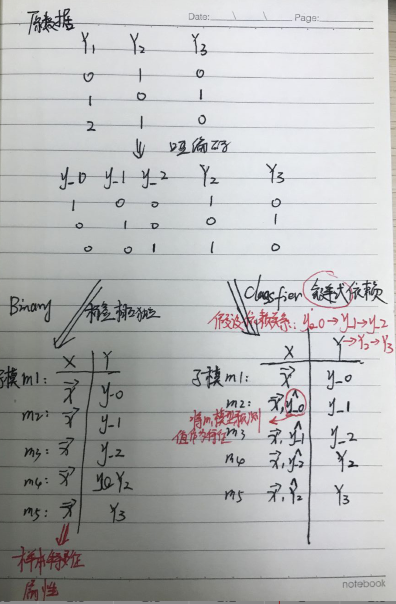 原数据
Date: \ \ Page:
Y₁ Y₂ Y₃
0 1 0
1 0 1
2 1 0
哑编码
y_0 y_1 y_2 Y₂ Y₃
1 0 0 1 0
0 1 0 0 1
0 0 1 1 0
Binary 标签相互独立
X Y
子模m1: x⃗ y_0
m2: x⃗ y_1
m3: x⃗ y_2
m4: x⃗ Y₂
m5: x⃗ Y₃
样本特征
属性
Classfier 链式依赖
假设依赖关系: y_0→y_1→y_2
→Y₂→Y₃
X Y
子模m1: x⃗ y_0
m2: x⃗, ŷ_0 y_1
将m1模型预测
值作为特征
m3 x⃗, ŷ_1 y_2
m4 x⃗, ŷ_2 Y₂
m5 x⃗, Ŷ₂ Y₃
notebook